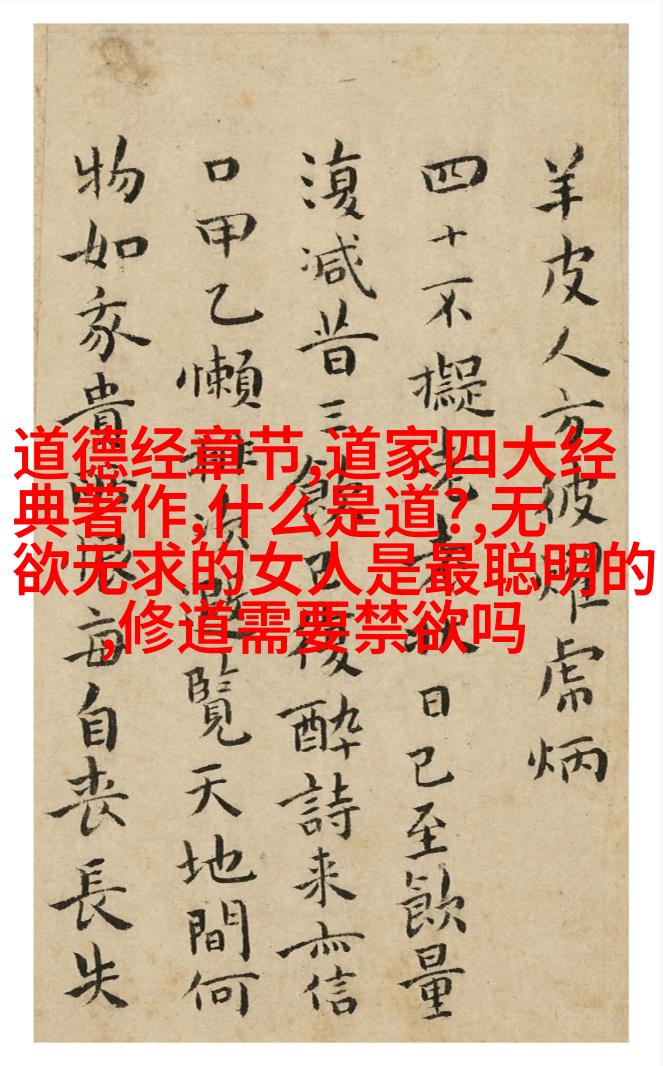 羊皮人方彼耀虎炳
四十不擬老 日已至飲量
復減昔三 後醉詩来亦信
口甲乙懶 次 覽天地間何
物如豕貴 每自丧長失
道德经章节,道家四大经
典著作,什么是道?,无
欲无求的女人是最聪明的
,修道需要禁欲吗